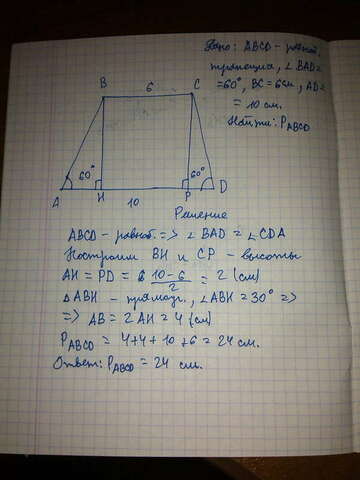 Дано: ABCD - равноб.
трапеция, ∠BAD =
=60°, BC = 6см, AD =
= 10 см.
Найти: P_ABCD
B 6 C
60° 60°
A H P D
10
Решение
ABCD - равноб. => ∠BAD = ∠CDA
Построим BH и CP - высоты
AH = PD = (10-6)/2 = 2 (см)
△ABH - прямоуг., ∠ABH = 30° =>
=> AB = 2AH = 4 (см)
P_ABCD = 4+4+10+6 = 24 см.
Ответ: P_ABCD = 24 см.